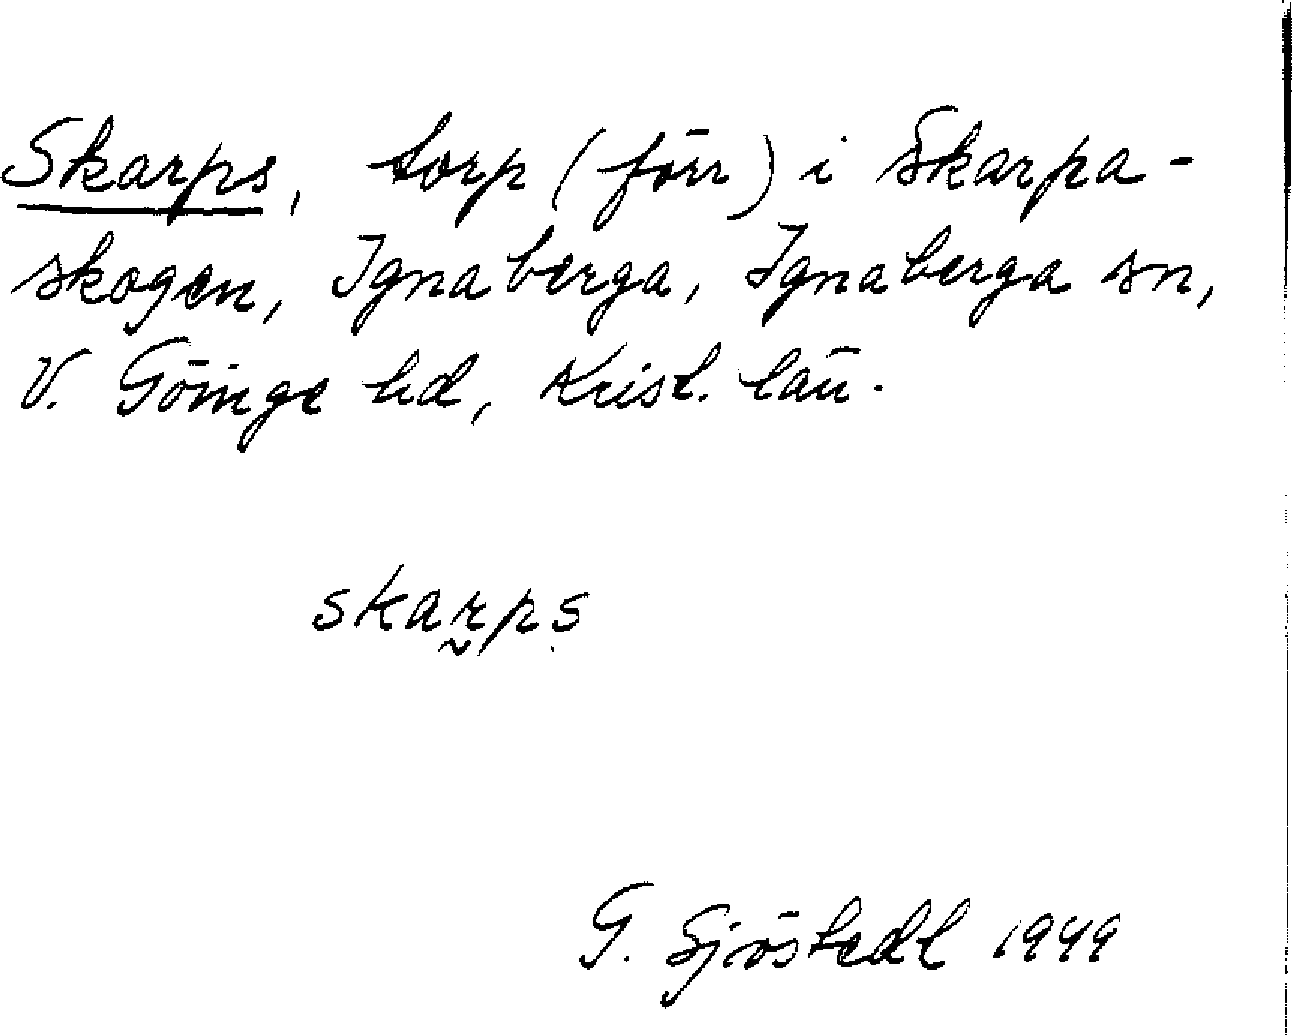 Skarps, torp (förr) i Skarpa-
skogen, Ignaberga, Ignaberga sn,
V. Göinge hd, Krist. län.
skarps
G. Sjöstedt 1949